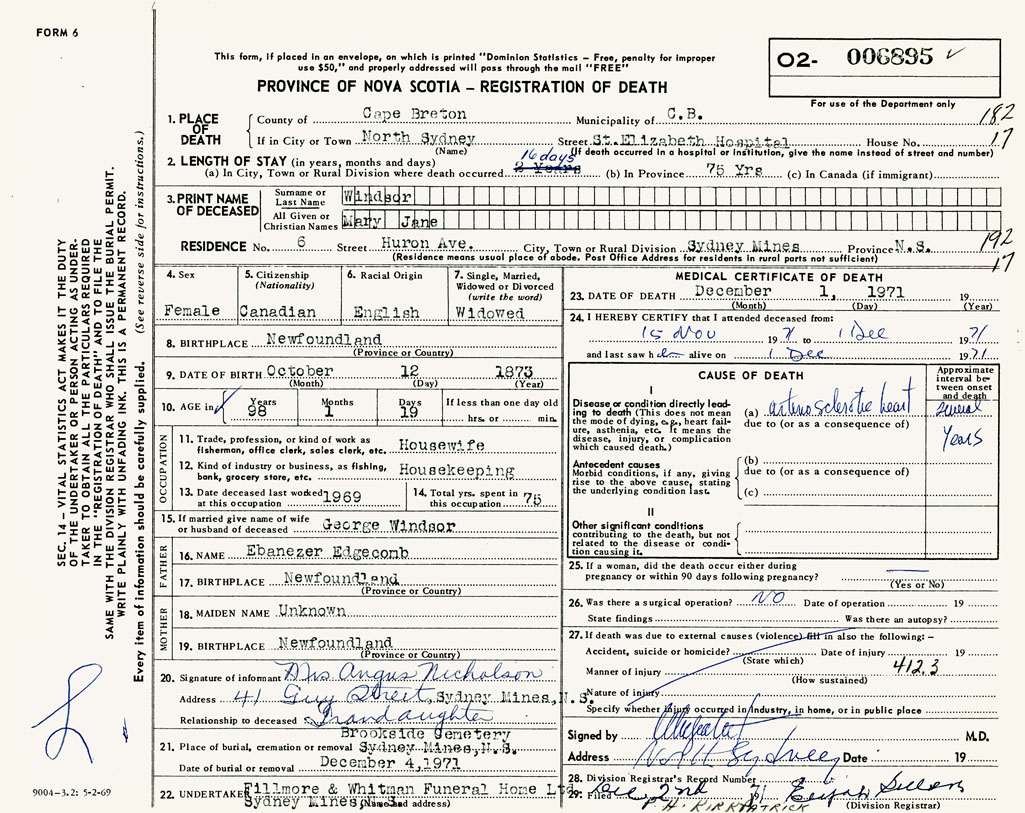 FORM 6
This form, if placed in an envelope, on which is printed "Dominion Statistics – Free, penalty for improper
use $50," and properly addressed will pass through the mail "FREE"
O2- 006895 ✓
For use of the Department only
PROVINCE OF NOVA SCOTIA – REGISTRATION OF DEATH
1. PLACE OF DEATH
County of Cape Breton Municipality of C.B. 182
If in City or Town North Sydney Street St.Elizabeth Hospital House No. 17
(Name) (If death occurred in a hospital or institution, give the name instead of street and number)
2. LENGTH OF STAY (in years, months and days) 16 days
(a) In City, Town or Rural Division where death occurred 2 Years (b) In Province 75 Yrs (c) In Canada (if immigrant)
3. PRINT NAME OF DECEASED
Surname or Last Name Windsor
All Given or Christian Names Mary Jane
RESIDENCE No. 6 Street Huron Ave. City, Town or Rural Division Sydney Mines Province N.S. 192
(Residence means usual place of abode. Post Office Address for residents in rural parts not sufficient) 17
4. Sex
Female
5. Citizenship
(Nationality)
Canadian
6. Racial Origin
English
7. Single, Married,
Widowed or Divorced
(write the word)
Widowed
8. BIRTHPLACE Newfoundland
(Province or Country)
9. DATE OF BIRTH October 12 1873
(Month) (Day) (Year)
10. AGE in ✓ Years Months Days If less than one day old
98 1 19 hrs. or min.
OCCUPATION
11. Trade, profession, or kind of work as
fisherman, office clerk, sales clerk, etc. Housewife
12. Kind of industry or business, as fishing,
bank, grocery store, etc. Housekeeping
13. Date deceased last worked
at this occupation 1969
14. Total yrs. spent in
this occupation 75
15. If married give name of wife
or husband of deceased George Windsor
FATHER
16. NAME Ebanezer Edgecomb
17. BIRTHPLACE Newfoundland
(Province or Country)
MOTHER
18. MAIDEN NAME Unknown
19. BIRTHPLACE Newfoundland
(Province or Country)
20. Signature of informant Mrs Angus Nicholson
Address 41 Guy Street, Sydney Mines, N.S.
Relationship to deceased Grandaughter
Brookside Cemetery
21. Place of burial, cremation or removal Sydney Mines, N.S.
Date of burial or removal December 4,1971
22. UNDERTAKER Fillmore & Whitman Funeral Home Ltd
Sydney Mines, N.S. (Name and address)
MEDICAL CERTIFICATE OF DEATH
23. DATE OF DEATH December 1, 1971 19
(Month) (Day) (Year)
24. I HEREBY CERTIFY that I attended deceased from:
15 Nov 1971 to 1 Dec 1971
and last saw her alive on 1 Dec 1971
CAUSE OF DEATH
Approximate
interval be-
tween onset
and death
I
Disease or condition directly lead-
ing to death (This does not mean
the mode of dying, e.g., heart fail-
ure, asthenia, etc. It means the
disease, injury, or complication
which caused death.)
(a) arteriosclerotic heart
due to (or as a consequence of)
several
Years
Antecedent causes
Morbid conditions, if any, giving
rise to the above cause, stating
the underlying condition last.
(b)
due to (or as a consequence of)
(c)
II
Other significant conditions
contributing to the death, but not
related to the disease or condi-
tion causing it.
25. If a woman, did the death occur either during
pregnancy or within 90 days following pregnancy?
(Yes or No)
26. Was there a surgical operation? NO Date of operation 19
State findings Was there an autopsy?
27. If death was due to external causes (violence) fill in also the following: –
Accident, suicide or homicide? Date of injury 19
(State which)
Manner of injury 412.3
(How sustained)
Nature of injury
Specify whether injury occurred in industry, in home, or in public place
Signed by M.D.
Address North Sydney Date 19
28. Division Registrar's Record Number
29. Filed Dec 2nd 71
P. H. KIRKPATRICK (Division Registrar)
SEC. 14 – VITAL STATISTICS ACT MAKES IT THE DUTY
OF THE UNDERTAKER OR PERSON ACTING AS UNDER-
TAKER TO OBTAIN ALL THE PARTICULARS REQUIRED
IN THE "REGISTRATION OF DEATH" AND TO FILE THE
SAME WITH THE DIVISION REGISTRAR WHO SHALL ISSUE THE BURIAL PERMIT.
WRITE PLAINLY WITH UNFADING INK. THIS IS A PERMANENT RECORD.
Every item of information should be carefully supplied. (See reverse side for instructions.)
9004-3.2: 5-2-69